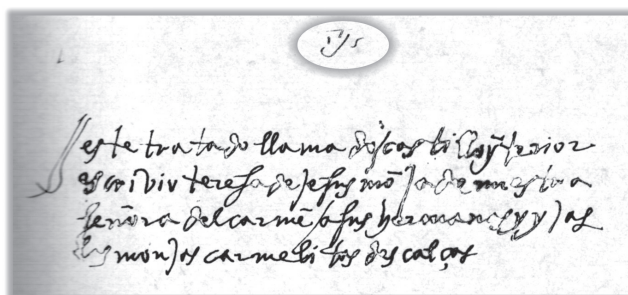 Jhs
este tratado llamado castillo yterior
escrivio teresa de jesus mōja de nuestra
señora del carmē a sus hermanas y yjas
las monjas carmelitas descalças